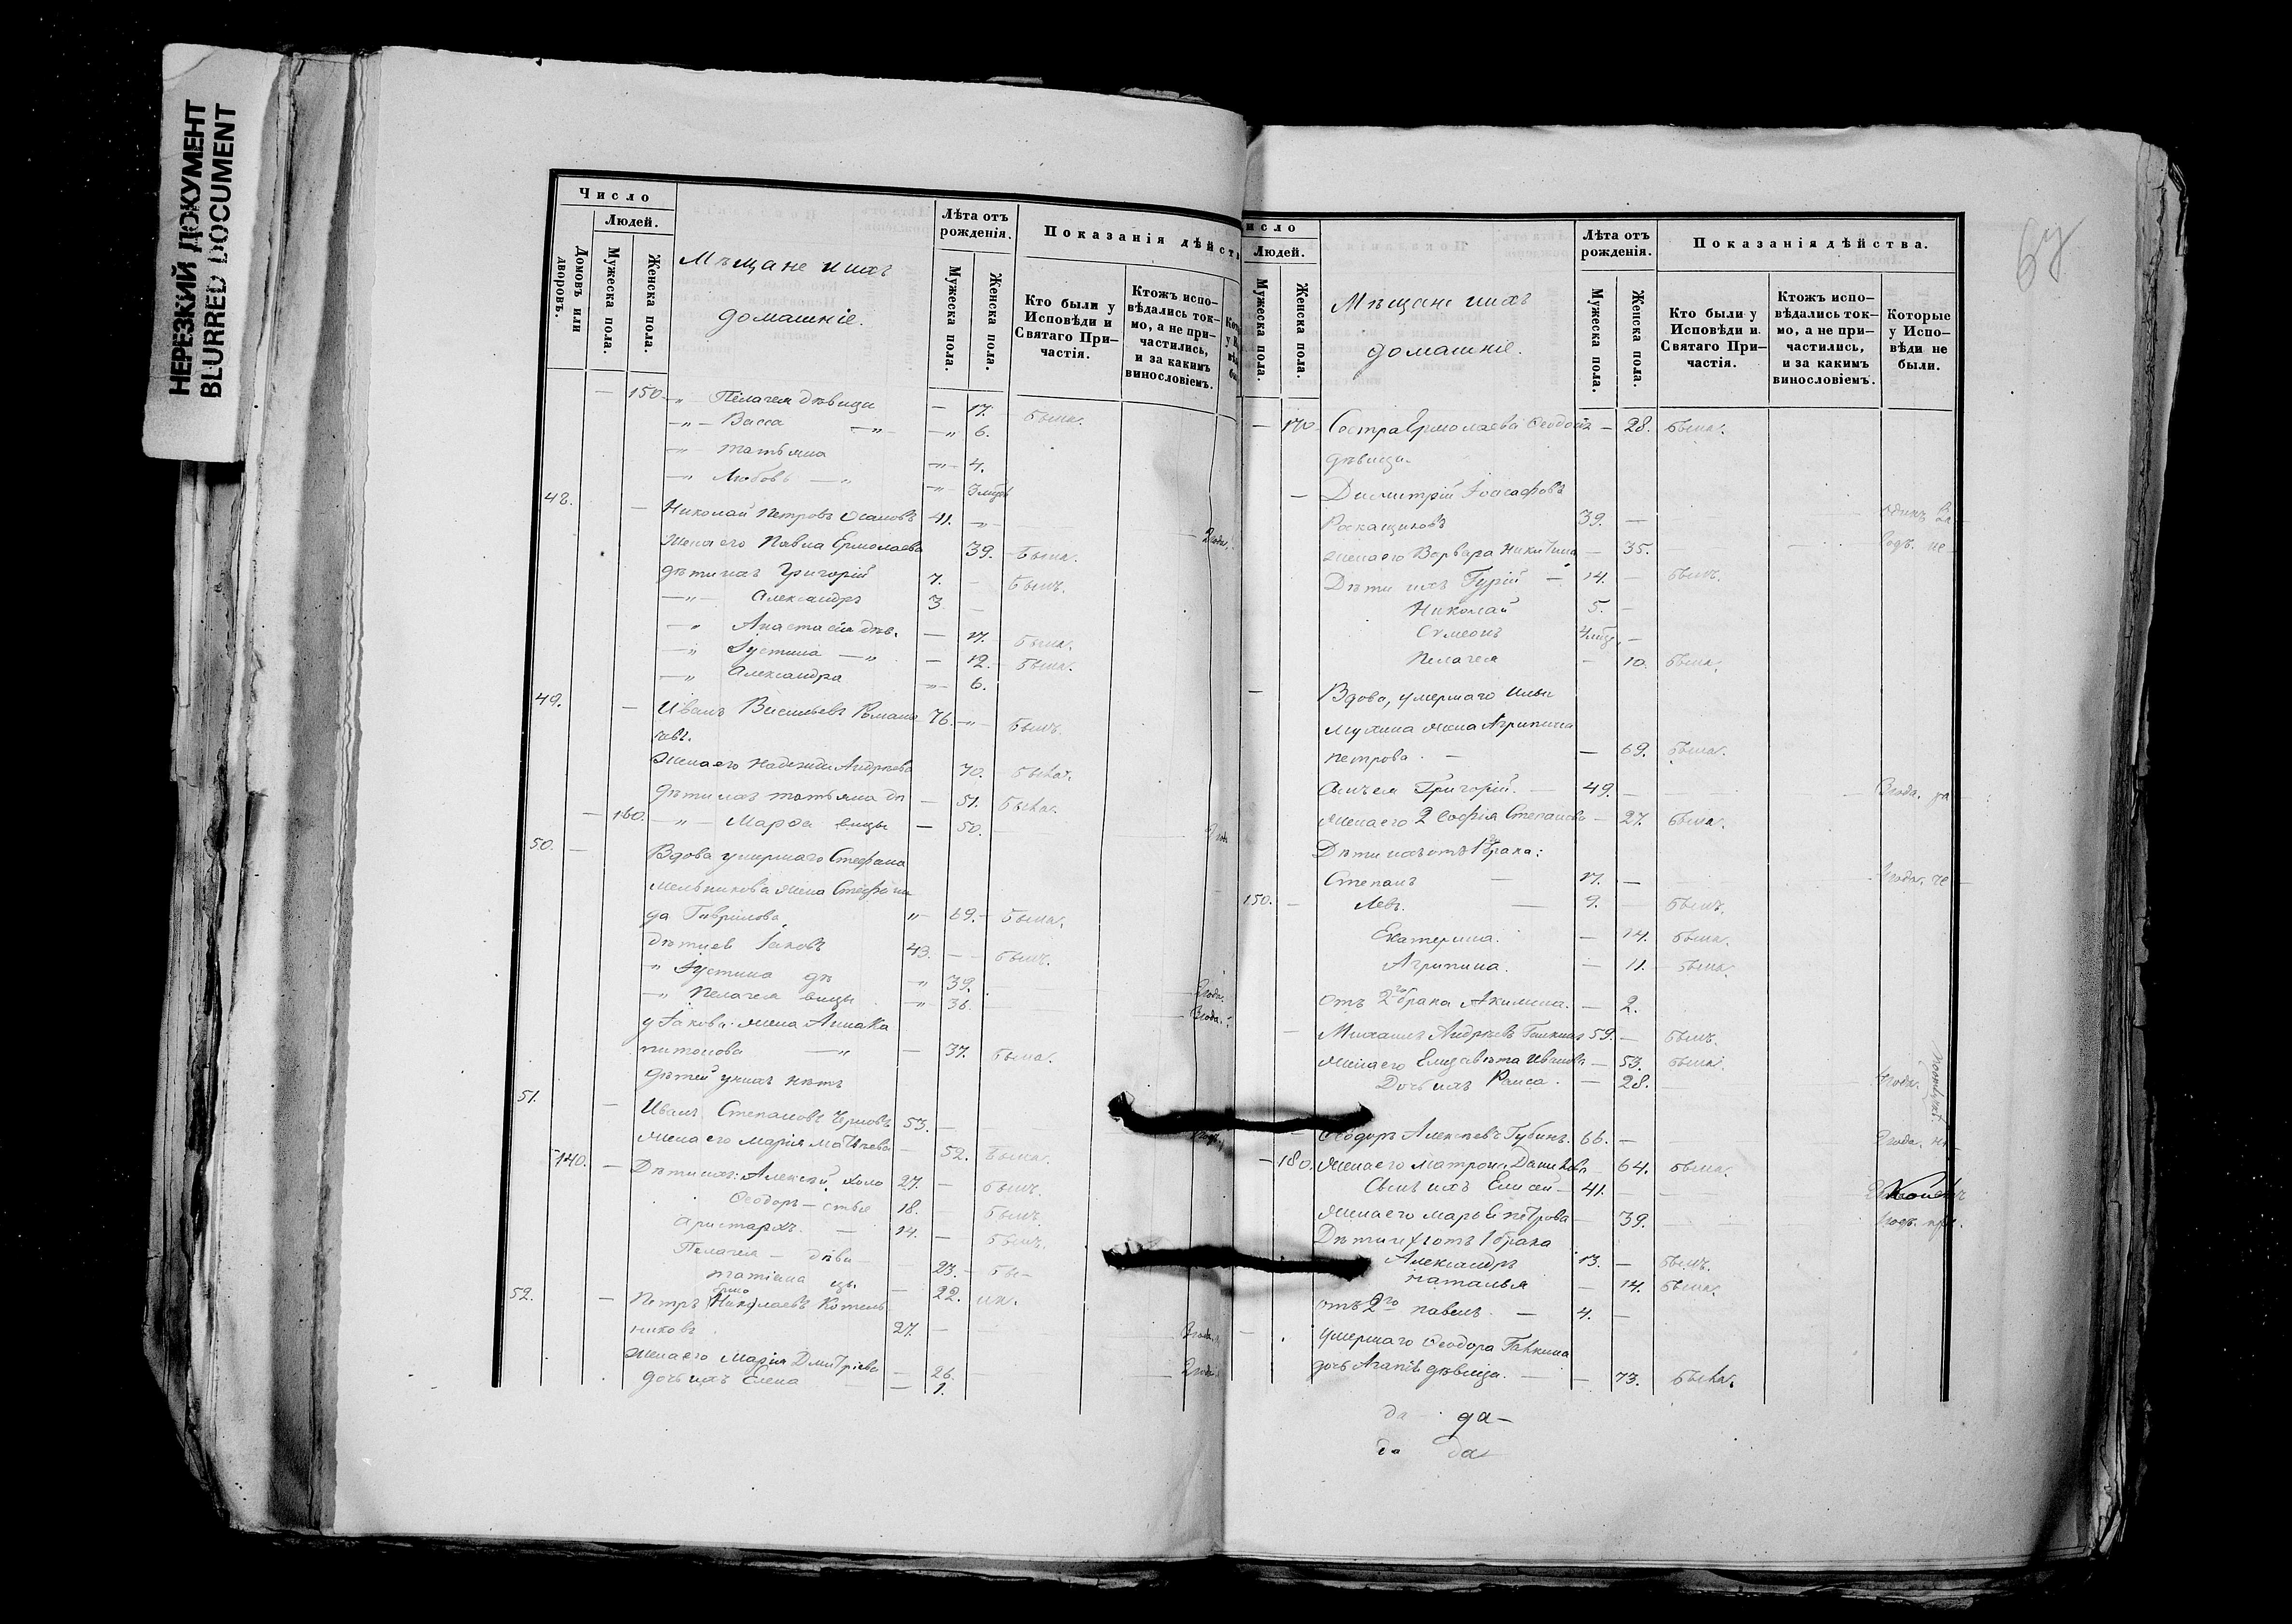 НЕРЕЗКИЙ ДОКУМЕНТ
BLURRED DOCUMENT
Число
Людей.
Домовъ или дворовъ.
Мужеска пола.
Женска пола.
Мѣщане и ихъ
домашніе.
Лѣта отъ рожденія.
Мужеска пола.
Женска пола.
Показанія дѣйст
Кто были у Исповѣди и Святаго Причастія.
Ктожъ исповѣдались токмо, а не причастились, и за какимъ винословіемъ.
150 Пелагея дѣвица 17. была.
Васса 6.
Татьяна 4.
Любовь 3 мцъ
48. Николай Петровъ 41. 2 года
Жена его Павла Ермолаева 39. была.
Дѣти ихъ Григорій 7. былъ.
Александръ 3
Анастасія дѣв. 17. была.
Іустина 12. была.
Александра 6.
49. Иванъ Васильевъ 76. былъ.
Жена его Надежда Андреева 70. была.
Дѣти ихъ Татьяна дѣ 51. была.
160. Марѳа вицы 50.
50. Вдова умершаго Стефана
Мельникова жена Стефани
да Гаврилова 69. была.
Дѣти ея Іаковъ 43. былъ.
Іустина дѣ 39. 2 года.
Пелагея вицы 36. 3 года.
у Іакова жена Анна Ка
питонова 37. была.
дѣтей у нихъ нѣтъ
51. Иванъ Степановъ Черновъ 53.
Жена его Марія Матвѣева 52. была.
140. Дѣти ихъ: Алексѣй холо 27. былъ.
Ѳеодоръ стые 18. былъ.
Аристархъ 14. былъ.
Пелагея дѣви 23. бы-
Татіана цы 22. ли.
52. Петръ Николаевъ Котель
никовъ 27. 2 года.
Жена его Марія Дмитріева 26. 2 года
дочь ихъ Елена 1.
исло
Людей.
Мужеска пола.
Женска пола.
Мѣщане и ихъ
домашніе.
Лѣта отъ рожденія.
Мужеска пола.
Женска пола.
Показанія дѣйства.
Кто были у Исповѣди и Святаго Причастія.
Ктожъ исповѣдались токмо, а не причастились, и за какимъ винословіемъ.
Которые у Исповѣди не были.
170 Сестра Ермолаева 28. была.
дѣвица.
Димитрій Іоасафовъ
39. одинъ
Жена его Варвара Никитина 35. годъ. не
Дѣти ихъ Гурій 14. былъ.
Николай 5.
Симеонъ 4 мцъ
Пелагея 10. была.
Вдова, умершаго Ильи
Мухина жена Агрипина
Петрова. 69. была.
Сынъ ея Григорій. 49. 3 года.
Жена его 2 Софія Степанова 27. была.
Дѣти ихъ отъ 1го брака:
Степанъ 17. года.
150. Левъ. 9. былъ.
Екатерина. 14. была.
Агрипина. 11. была.
отъ 2го брака Акилина. 2.
Михаилъ Андреевъ 59. былъ.
Жена его Елизавета Иванова 53. была.
Дочь ихъ Раиса. 28. года.
Ѳеодоръ Алексѣевъ Губинъ. 66. 2 года.
180. Жена его Матрона Данилова 64. была.
Сынъ ихъ Елисей 41.
Жена его Марья Петрова 39. годъ.
Дѣти отъ 1 брака
Александръ 13. былъ.
Наталья 14. была.
отъ 2го Павелъ 4.
умершаго Ѳеодора Галкина
дочь Агапія дѣвица. 73. была.
да да
да да